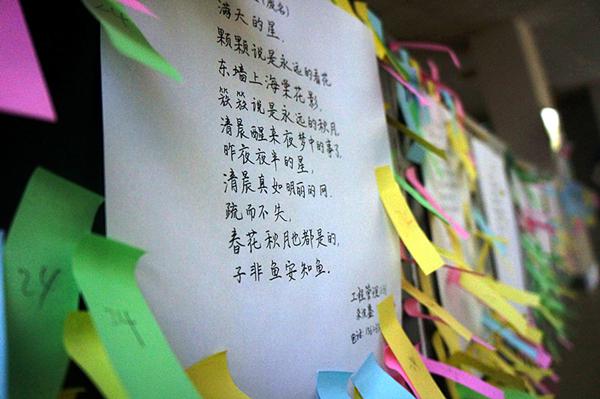 (废名)
满天的星,
颗颗说是永远的春花
东墙上海棠花影,
簇簇说是永远的秋月
清晨醒来夜梦中的事了,
昨夜夜半的星,
清晨真如明丽的网.
疏而不失,
春花秋月也都是的,
子非鱼安知鱼.
工程管理
24
24